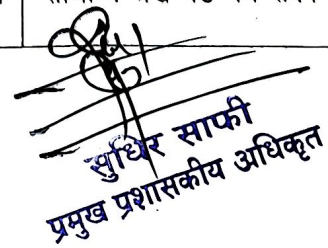 सुधिर साफी
प्रमुख प्रशासकीय अधिकृत